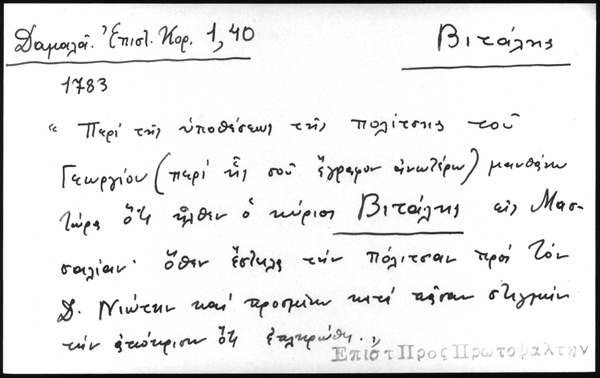 Δαμαλᾶ. Ἐπιστ. Κορ. 1,40 Βιτάλης
1783
" Περὶ τῆς ὑποθέσεως τῆς πολίτσης τοῦ
Γεωργίου (περὶ ἧς σοῦ ἔγραφον ἀνωτέρω) μανθάνω
τώρα ὅτι ἦλθεν ὁ κύριος Βιτάλης εἰς Μασ-
σαλίαν· ὅθεν ἔστειλα τὴν πόλιτσαν πρὸς τὸν
Δ. Νιώτην καὶ προσμένω κατὰ πᾶσαν στιγμὴν
τὴν ἀπόκρισιν ὅτι ἐπληρώθη.,,
Επιστ Προς Πρωτοψαλτην